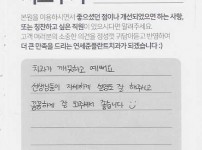 본원을 이용하시면서 좋으셨던 점이나 개선되었으면 하는 사항,
또는 칭찬하고 싶은 직원이 있으시다면 알려주세요
고객 여러분의 소중한 의견을 정성껏 귀담아듣고 반영하여
더 큰 만족을 드리는 연세준플란트치과가 되겠습니다 :)
치과가 깨끗하고 예뻐요
선생님들이 자세하게 설명도 잘 해주시고
꼼꼼하게 잘 치료해주셔서 좋습니다